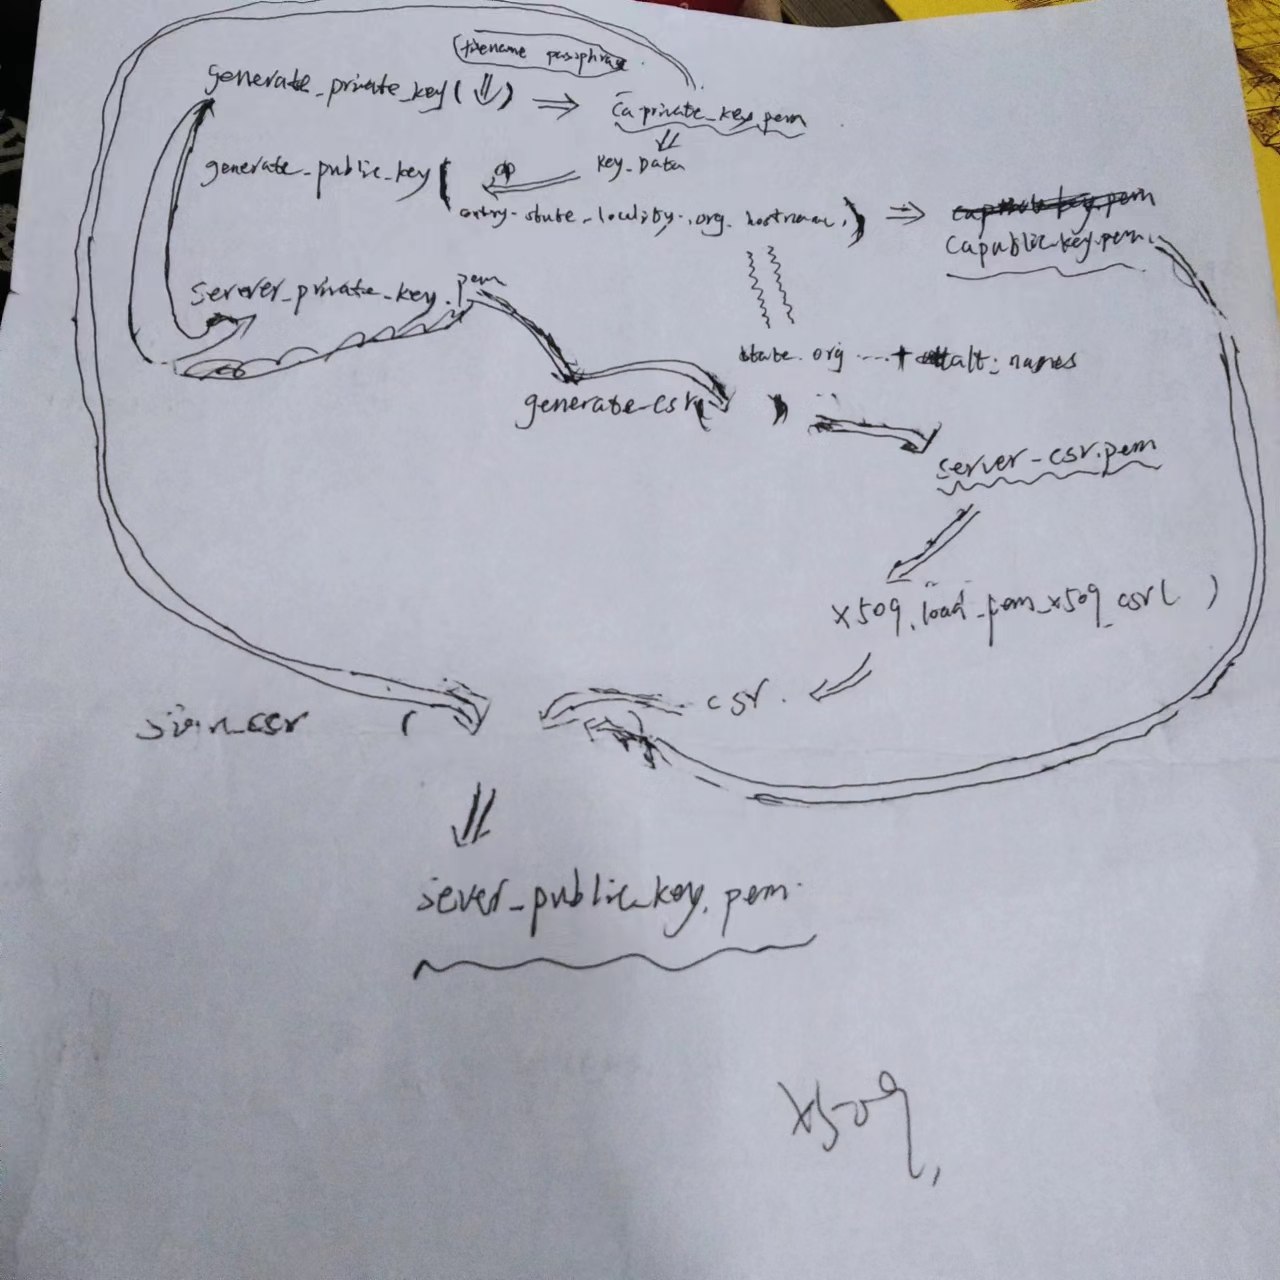 filename passphrase
generate_private_key( ) ca private_key.pem
key_data
generate_public_key(
state_locality..org. hostname.)
capublic_key.pem.
serever_private_key.pem
state. org ....+ alt: names
generate-csr( )
server-csr.pem
x509.load_pem_x509_csr( )
csr.
sign_csr (
sever_public_key.pem.
x509,